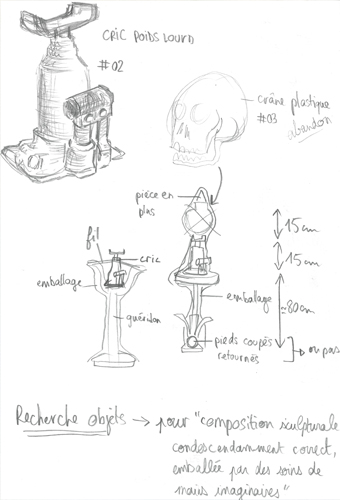 CRIC POIDS LOURD
#02
crâne plastique
#03
abandon
pièce en
plus
15 cm
fil
cric
15 cm
emballage
emballage
≃80cm
guéridon
pieds coupés
retournés
ou pas
Recherche objets → pour "composition sculpturale
condescendamment correct,
emballée par des soins de
mains imaginaires"